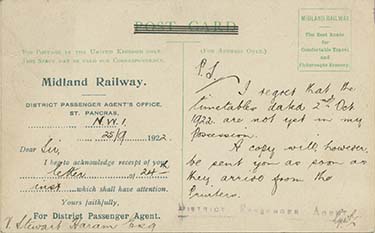 POST CARD
FOR POSTAGE IN THE UNITED KINGDOM ONLY
THIS SPACE MAY BE USED FOR CORRESPONDENCE.
(FOR ADDRESS ONLY.)
MIDLAND RAILWAY.
The Best Route for
Comfortable Travel
and
Picturesque Scenery.
Midland Railway.
DISTRICT PASSENGER AGENT'S OFFICE,
ST. PANCRAS,
N.W.1.
25/9 1922
Dear Sir,
I beg to acknowledge receipt of your
letter of 24th
inst which shall have attention.
Yours faithfully,
For District Passenger Agent.
V. Stewart Haram Esq
P.S.
I regret that the
timetables dated 2nd Oct
1922 are not yet in my
possession.
A copy will, however,
be sent you as soon as
they arrive from the
Printers.
DISTRICT PASSENGER AGENT